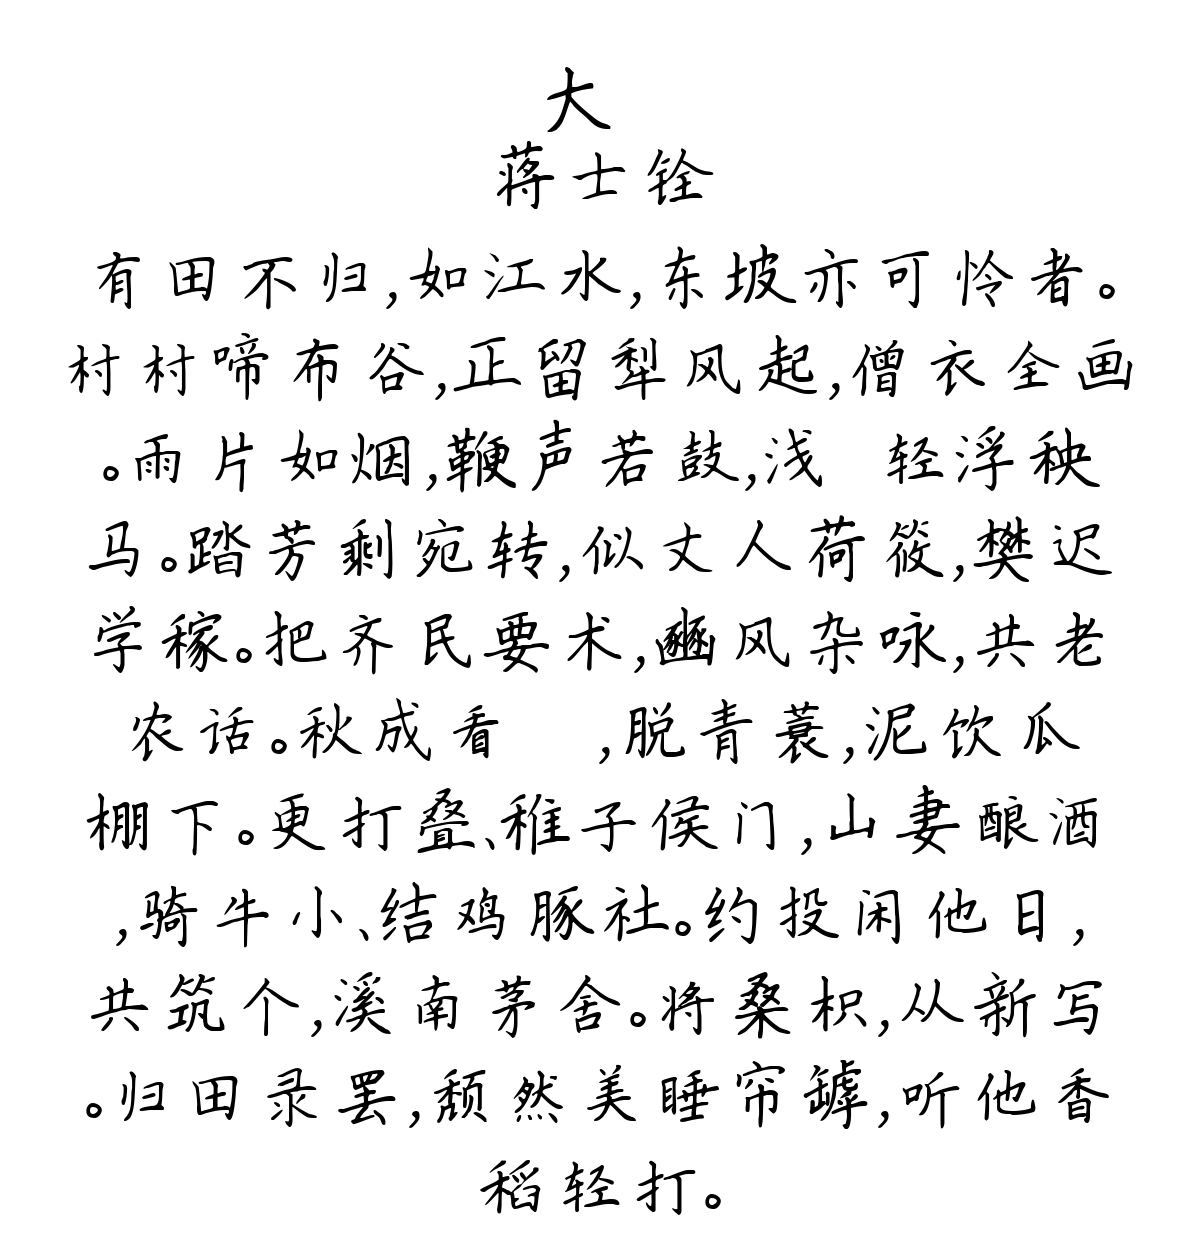 大
蒋士铨
有田不归,如江水,东坡亦可怜者。
村村啼布谷,正留犁风起,僧衣全画
。雨片如烟,鞭声若鼓,浅 轻浮秧
马。踏芳剩宛转,似丈人荷筱,樊迟
学稼。把齐民要术,豳风杂咏,共老
农话。秋成看 ,脱青蓑,泥饮瓜
棚下。更打叠、稚子侯门,山妻酿酒
,骑牛小、结鸡豚社。约投闲他日,
共筑个,溪南茅舍。将桑枳,从新写
。归田录罢,颓然美睡帘罅,听他香
稻轻打。